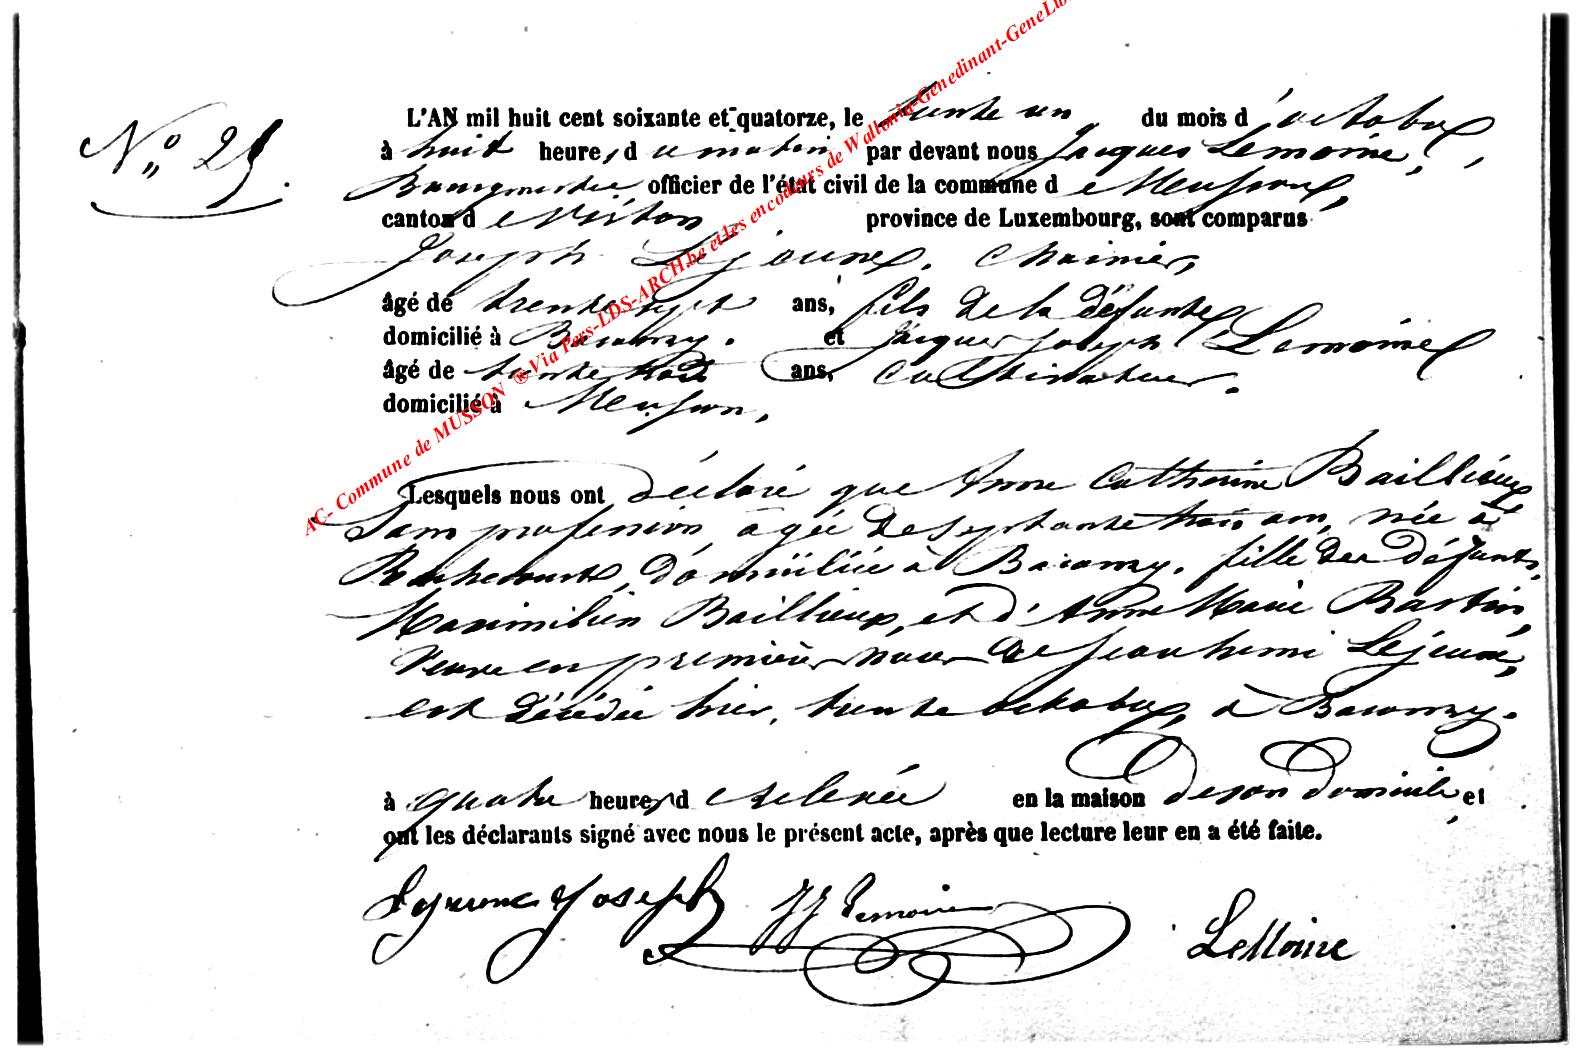 N° 25.
L'AN mil huit cent soixante et quatorze, le trente un du mois d'octobre
à huit heures du matin par devant nous Jacques Lemoine,
Bourgmestre officier de l'état civil de la commune de Musson,
canton de Virton province de Luxembourg, sont comparus
Joseph Lejeune,
âgé de trente sept ans, fils de la défunte
domicilié à Baranzy. et Jacques Joseph Lemoine
âgé de trente trois ans, cultivateur.
domicilié à Musson,
Lesquels nous ont déclaré que Anne Catherine Baillieux
Sans profession, âgée de septante trois ans, née à
domiciliée à Baranzy. fille des défunts,
Maximilien Baillieux, et d'Anne Marie
Veuve en premières noces de Jean henri Lejeune,
est décédée hier, trente octobre, à Baranzy.
à quatre heures de relevée en la maison de son domicile et
ont les déclarants signé avec nous le présent acte, après que lecture leur en a été faite.
Lejeune Joseph JJ Lemoine Lemoine
AC- Commune de MUSSON ® Via Pers-LDS-ARCH.be et les encodeurs de Wallonia-Genedinant-GeneLux